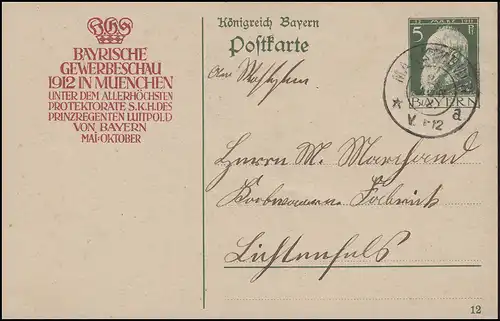 BAYRISCHE
GEWERBESCHAU
1912 IN MUENCHEN
UNTER DEM ALLERHÖCHSTEN
PROTEKTORATE S.K.H. DES
PRINZREGENTEN LUITPOLD
VON BAYERN
MAI-OKTOBER
Königreich Bayern
Postkarte
5
BAYERN
V. 1-12
a
Herrn M. Marchand
Korbwaaren Fabrick
Lichtenfels
12